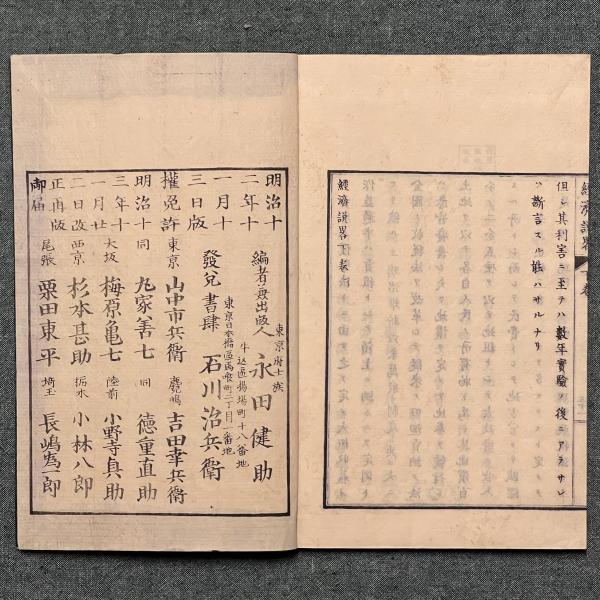 經濟説畧 下卷
但シ其利害ニ至テハ數年實驗ノ後ニアラサレ
ハ斷言スル能ハサルナリ
經濟説畧下卷終
明治十
二年十
一月十
三日版
權免許
明治十
三年十
一月廿
二日改
正再版
御届
東京府士族
編者兼出版人 永田健助
牛込區揚場町十八番地
東京日本橋區馬喰町二丁目一番地
發兌書肆 石川治兵衛
東京 山中市兵衛 麑嶋 吉田幸兵衛
同 丸家善七 同 德重直助
大坂 梅原亀七 陸前 小野寺眞助
西京 杉本甚助 栃木 小林八郎
尾張 栗田東平 埼玉 長嶋為一郎